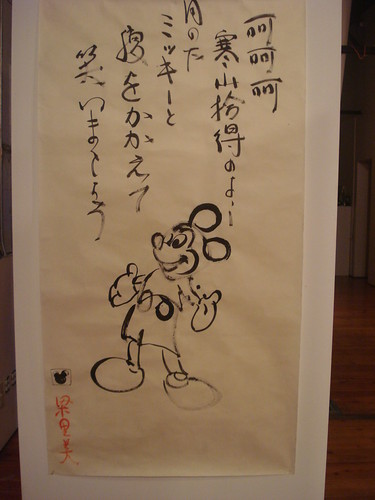 呵呵呵
寒山拾得のように
月のた
ミッキーと
腹をかかえて
笑いましょう
里美